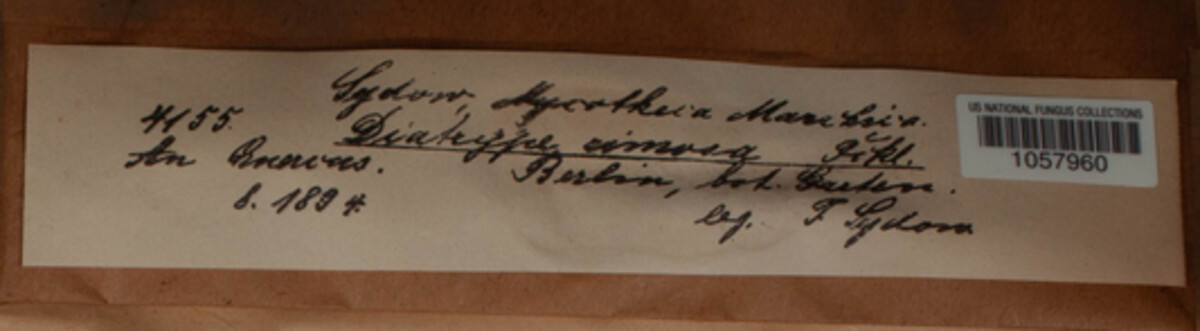 Sydow, Mycotheca Marchica.
4155. Diatrype rimosa Fckl.
An Quercus. Berlin, bot. Garten.
8. 1894. leg. P. Sydow
US NATIONAL FUNGUS COLLECTIONS
1057960